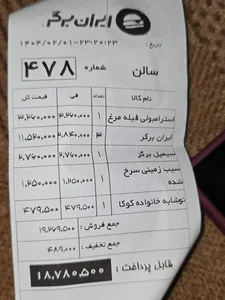 ایران برگر
تاریخ : ۱۴۰۴/۰۲/۰۱-۲۳:۲۰:۲۳
سالن شماره ۴۷۸
نام کالا تعداد فی قیمت کل
استرامبولی فیله مرغ ۱ ۳,۲۶۰,۰۰۰ ۳,۲۶۰,۰۰۰
ایران برگر ۳ ۳,۸۴۰,۰۰۰ ۱۱,۵۲۰,۰۰۰
سیمپل برگر ۱ ۲,۷۶۰,۰۰۰ ۲,۷۶۰,۰۰۰
سیب زمینی سرخ ۱ ۱,۲۵۰,۰۰۰ ۱,۲۵۰,۰۰۰
شده
نوشابه خانواده کوکا ۱ ۴۷۹,۵۰۰ ۴۷۹,۵۰۰
جمع فروش : ۱۹,۲۶۹,۵۰۰
جمع تخفیف : ۴۸۹,۰۰۰
قابل پرداخت : ۱۸,۷۸۰,۵۰۰